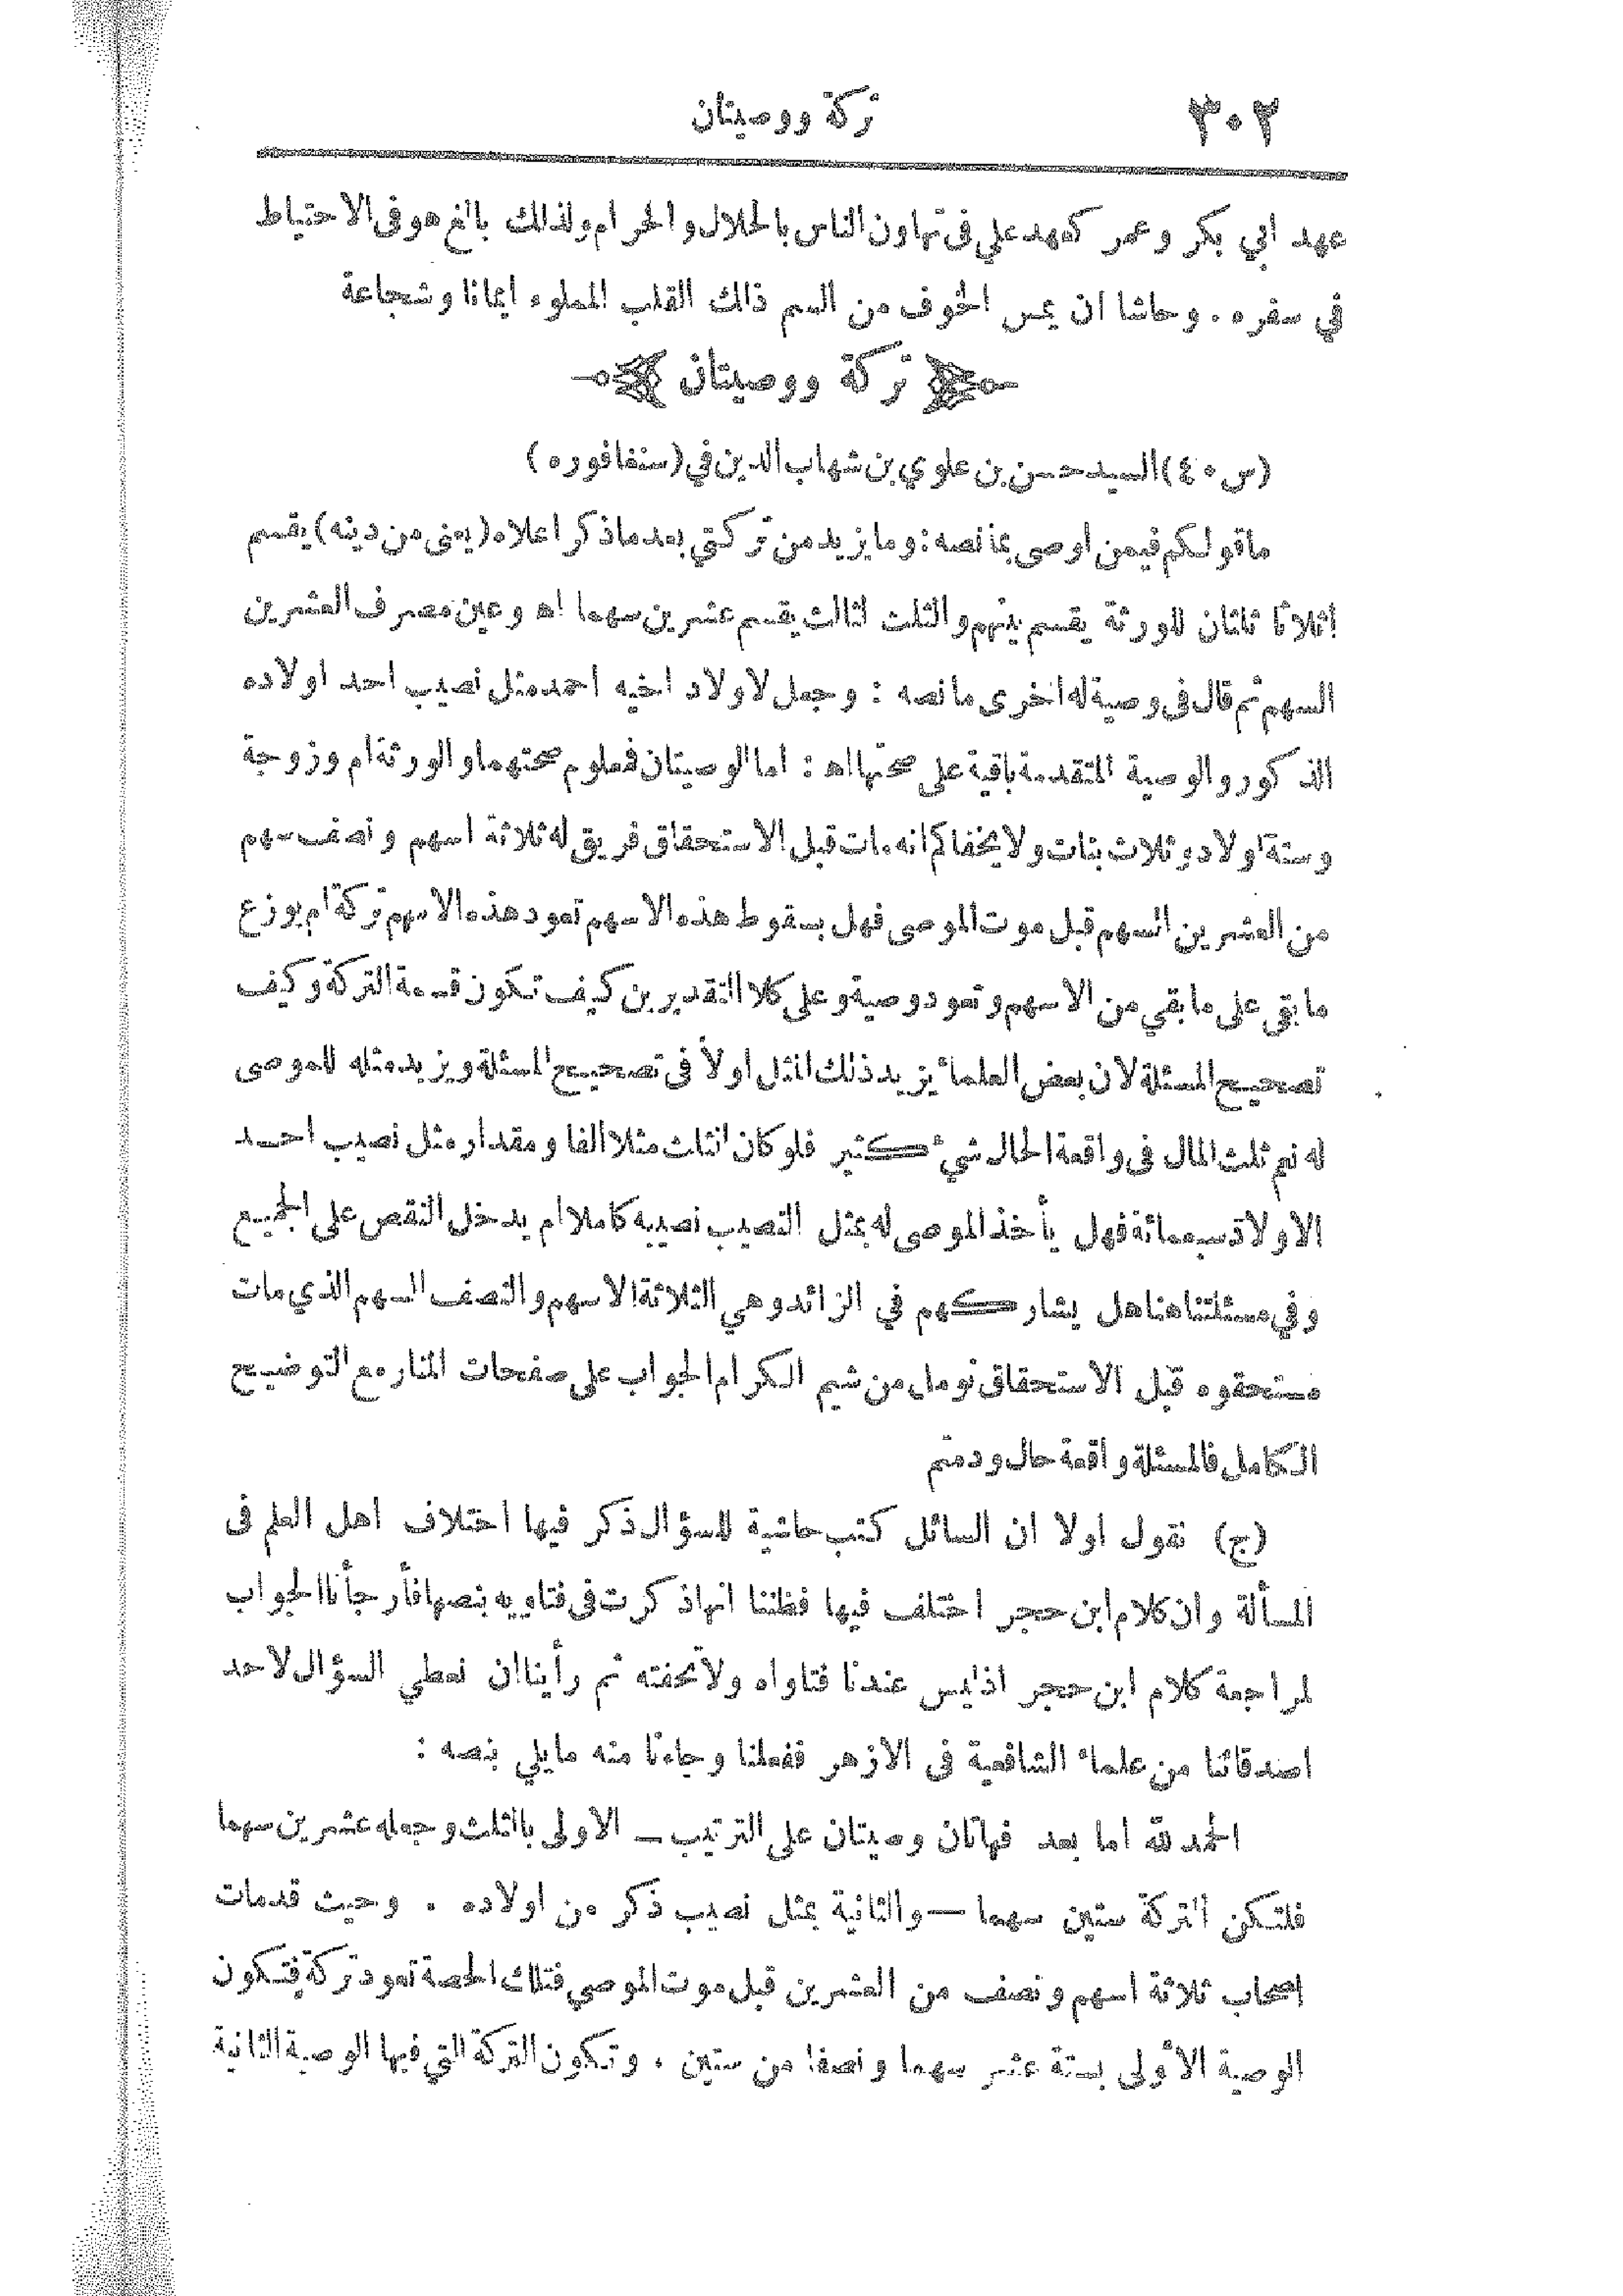 ٣٠٢ تركة ووصيتان
عهد ابي بكر وعمر كعهد علي في تهاون الناس بالحلال والحرام ولذلك بالغ هو في الاحتياط
في سفره . وحاشا ان يمس الخوف من السم ذلك القلب المملوء ايمانا وشجاعة
تركة ووصيتان
(س ٤٠) السيد حسن بن علوي بن شهاب الدين في (سنغافوره)
ماقولكم فيمن اوصى بما نصه : وما يزيد من تركتي بعد ماذكر اعلاه (يعنى من دينه) يقسم
إثلاثا ثلثان للورثة يقسم بينهم والثلث الثالث يقسم عشرين سهما اه وعين مصرف العشرين
السهم ثم قال فى وصية له اخرى مانصه : وجعل لاولاد اخيه احمد مثل نصيب احد اولاده
الذكور والوصية المتقدمة باقية على صحتها اه : اما الوصيتان فمعلوم صحتهما والورثة ام وزوجة
وستة اولاد وثلاث بنات ولا يخفاكم انه مات قبل الاستحقاق فريق له ثلاثة اسهم ونصف سهم
من العشرين السهم قبل موت الموصى فهل بسقوط هذه الاسهم تعود هذه الاسهم تركة ام يوزع
ما بقي على ما بقي من الاسهم وتعود وصية وعلى كلا التقديرين كيف تكون قسمة التركة وكيف
تصحيح المسئلة لان بعض العلماء يزيد ذلك المثل اولاً فى تصحيح المسئلة ويزيد مثله للموصى
له ثم ثلث المال فى واقعة الحال شيء كثير فلو كان الثلث مثلا الفا ومقدار مثل نصيب احد
الاولاد سبعمائة فهل يأخذ الموصى له بمثل النصيب نصيبه كاملا ام يدخل النقص على الجميع
وفي مسئلتنا هنا هل يشاركهم في الزائد وهي الثلاثة الاسهم والنصف السهم الذي مات
مستحقوه قبل الاستحقاق نومل من شيم الكرام الجواب على صفحات المنار مع التوضيح
الكامل فالمسئلة واقعة حال ودمتم
(ج) نقول اولا ان السائل كتب حاشية للسؤال ذكر فيها اختلاف اهل العلم فى
المسألة وان كلام ابن حجر اختلف فيها فظننا انها ذكرت فى فتاويه بنصها فأرجأنا الجواب
لمراجعة كلام ابن حجر اذ ليس عندنا فتاواه ولا تحفته ثم رأينا ان نعطي السؤال لاحد
اصدقائنا من علماء الشافعية فى الازهر ففعلنا وجاءنا منه مايلي بنصه :
الحمد لله اما بعد فهاتان وصيتان على الترتيب ــ الاولى بالثلث وجعله عشرين سهما
فلتكن التركة ستين سهما — والثانية بمثل نصيب ذكر من اولاده . وحيث قد مات
اصحاب ثلاثة اسهم ونصف من العشرين قبل موت الموصي فتلك الحصة تعود تركة فتكون
الوصية الأولى بستة عشر سهما ونصفا من ستين . وتكون التركة التي فيها الوصية الثانية